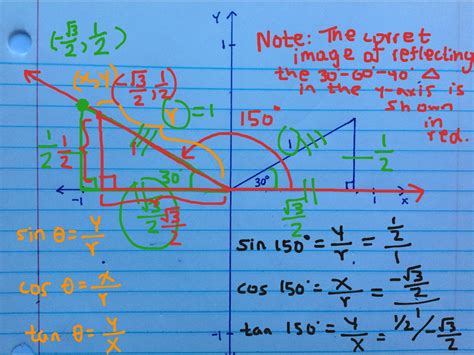 (-√3/2, 1/2)
Y
1
Note: The corret
image of reflecting
the 30-60-90 △
in the y-axis is
shown
in
red.
(x,y)
(-√3/2, 1/2)
r = 1
150°
1
1/2 1/2
30
30°
1/2
-1
√3/2 √3/2
√3/2
1
x
sin θ = y/r
cos θ = x/r
tan θ = y/x
-1
sin 150° = y/r = 1/2/1
cos 150° = x/r = -√3/2/1
tan 150° = y/x = 1/2/-√3/2